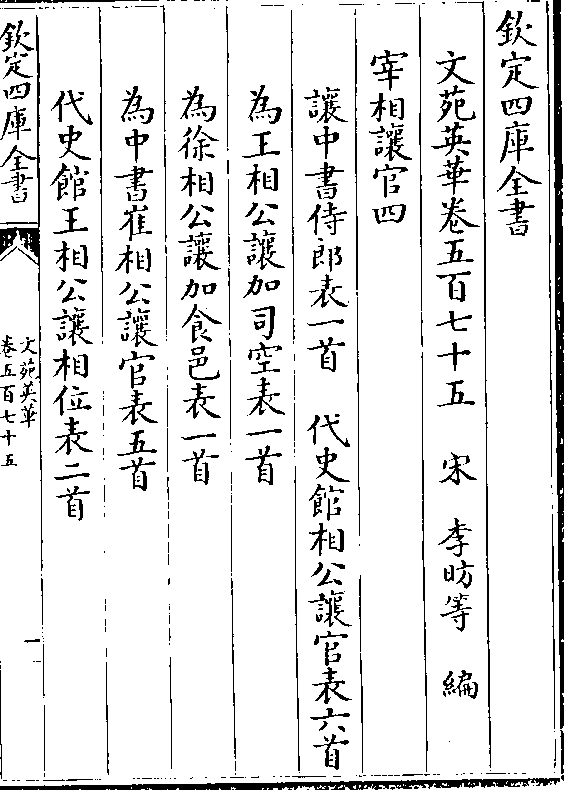 欽定四庫全書
文苑英華卷五百七十五　宋　李昉等　編
宰相讓官四
讓中書侍郎表一首　代史館相公讓官表六首
為王相公讓加司空表一首
為徐相公讓加食邑表一首
為中書崔相公讓官表五首
代史館王相公讓相位表二首
欽定四庫全書
文苑英華
卷五百七十五
一